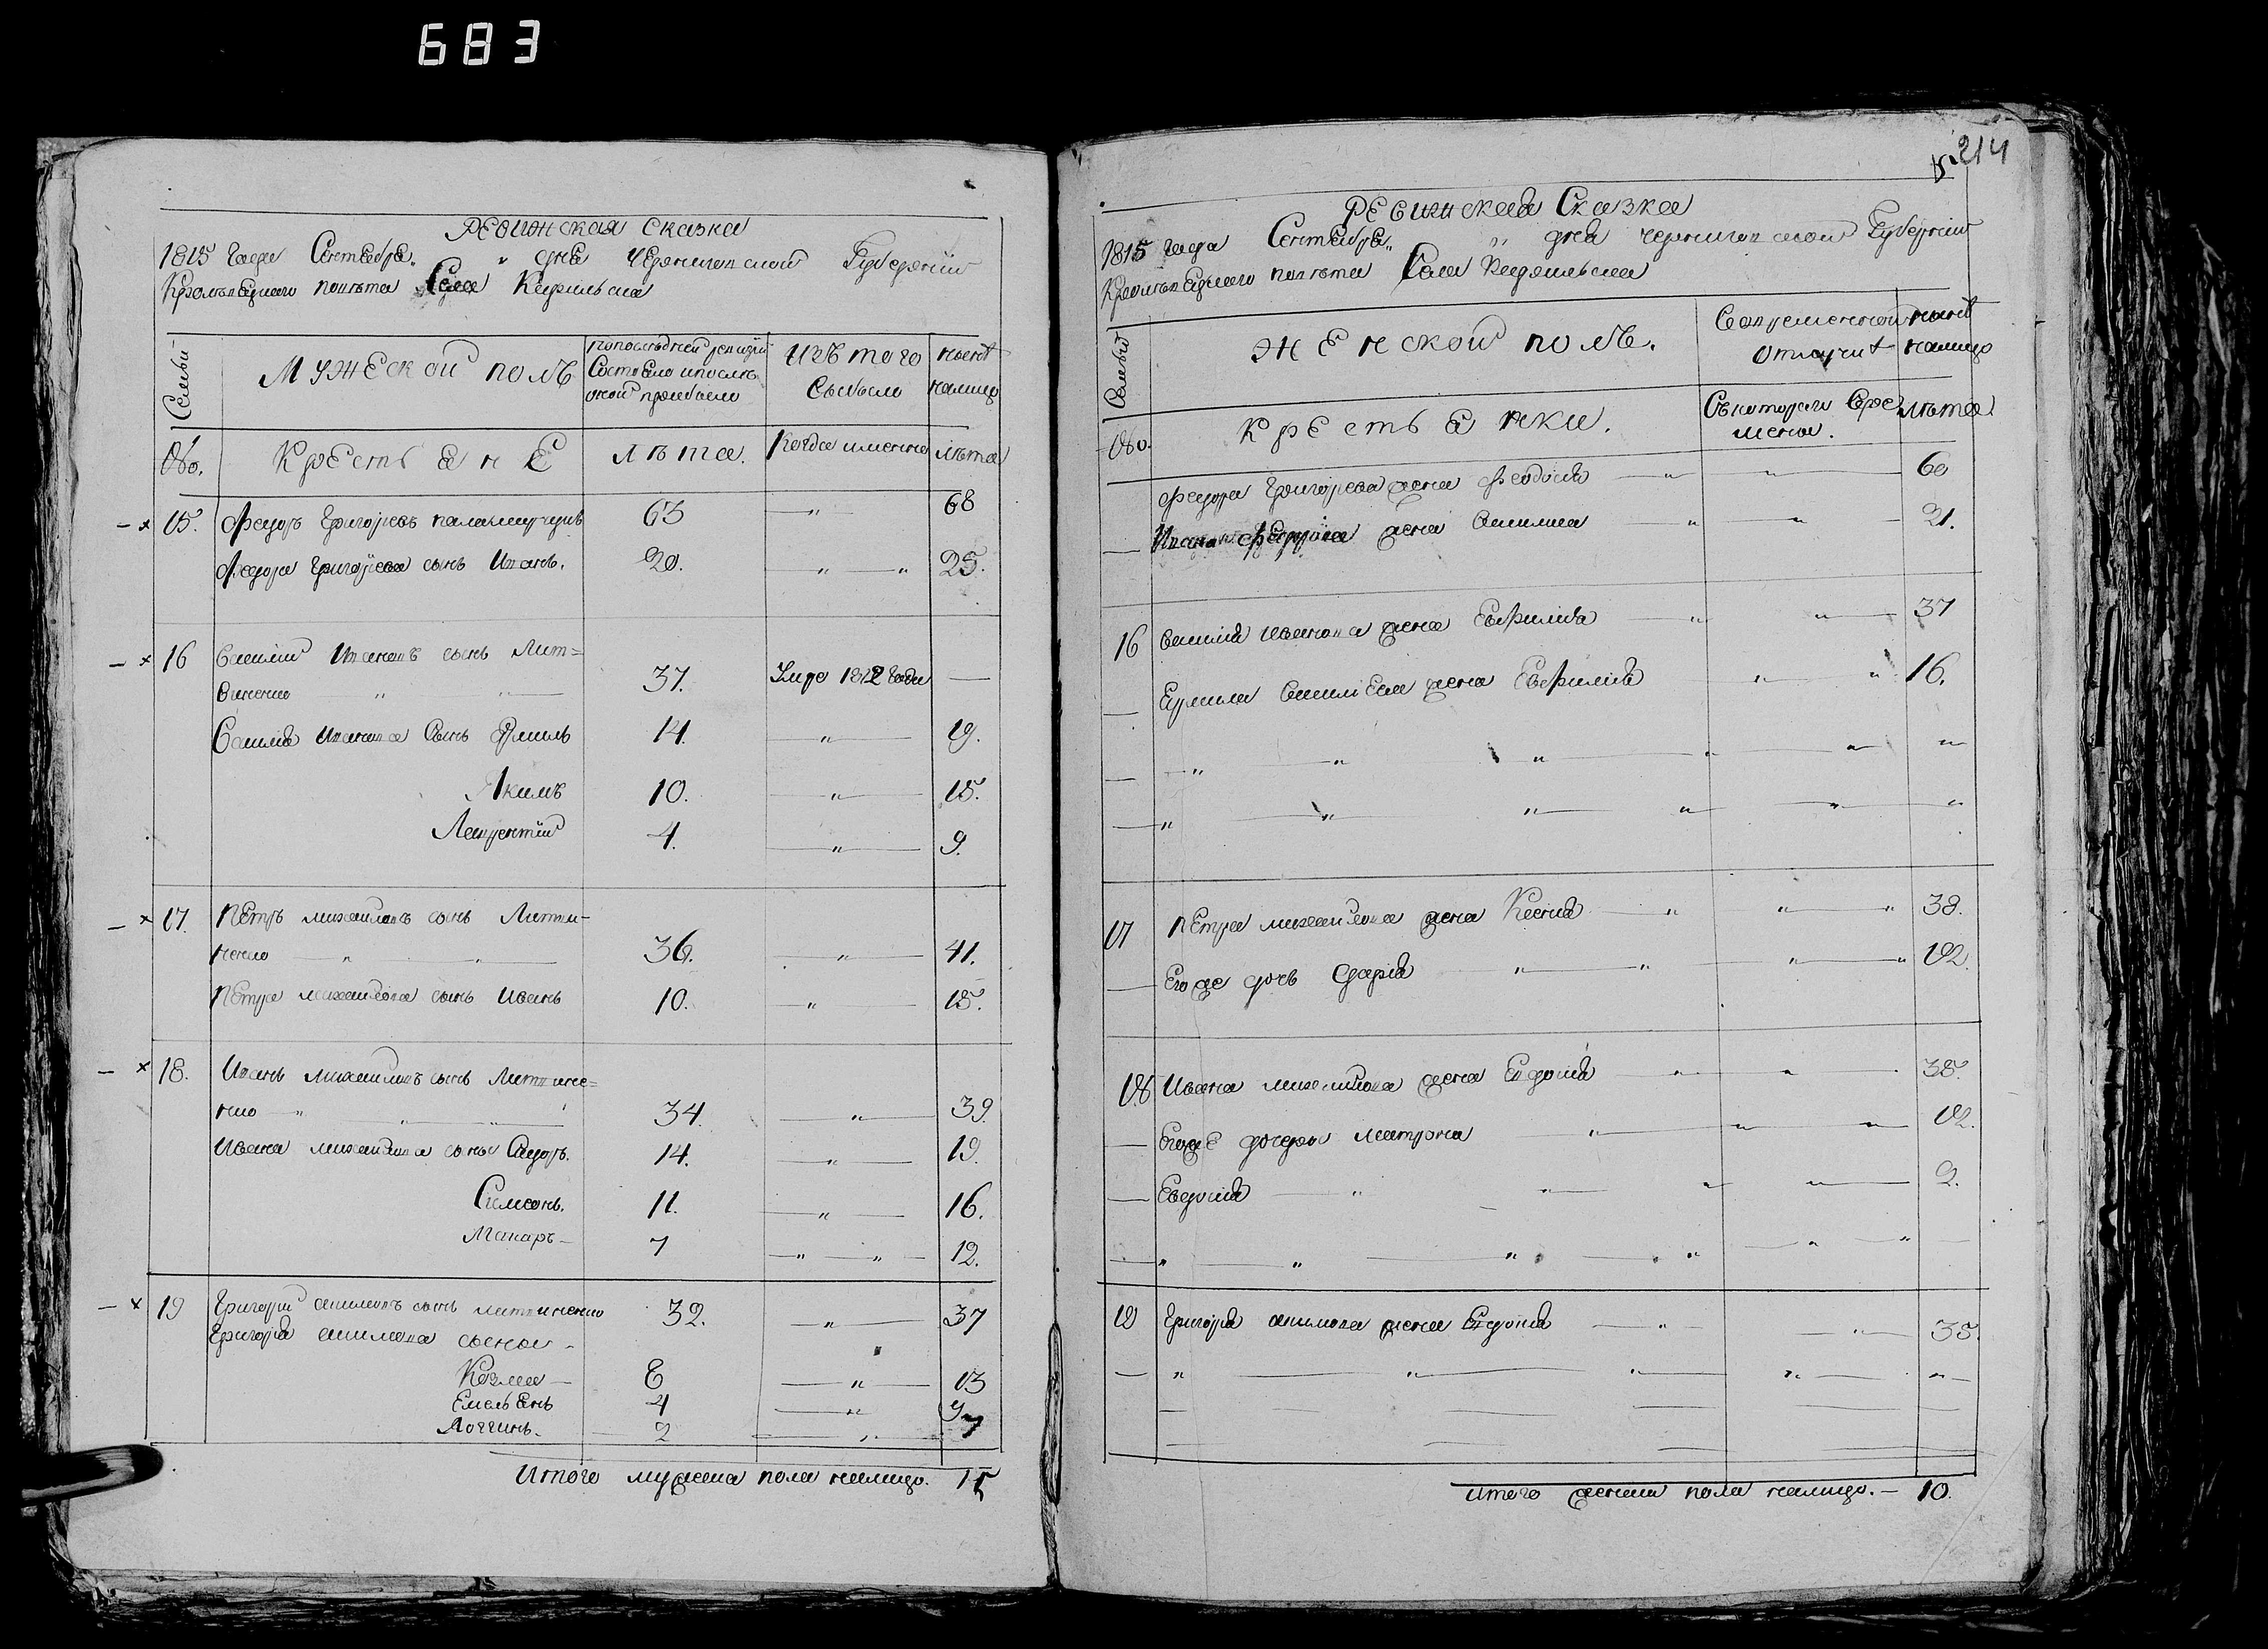 683
РЕВИЖСКАЯ СКАЗКА
1815 Года Сентебра „ днЕ Чернигопской Губернïи
КролЪпЕцкого попЪта Села
МужЕской полЪ
попослЪдней ревизïи
Состоело ипослЪ
оной прибыло
изЪ того
Выбыло
нынЪ
налицо
Семьи
КрЕстьЕнЕ
лЪта.
Когда имянно
лЪта
15. Федоръ Григорïевъ 63 „ 68
Федора Григорïева сынъ Иванъ. 20. „ „ 25.
16 Василïй Ипановъ сынъ Лит=
виненко „ „ 37. Умре 1812 Года —
Василïа Ипанова Сынъ Ермилъ 14. „ 19.
Якимъ 10. „ 15.
Лаврентïй 4. „ 9.
17. ПЕтръ михайловъ сынъ Литви-
ненко „ „ 36. „ 41.
ПЕтра михайлова сынъ Иванъ 10. „ 15.
18. Иванъ михайловъ сынъ Литвине=
нко „ „ „ 34. „ 39.
Ивана михайлова сынъ Сидоръ. 14. „ 19.
Симеонъ. 11. „ 16.
Макаръ — 7 „ „ 12.
19 Григорïй акимовъ сынъ литвиненко 32. „ 37
Григорïа акимова сыны -
Козма — 8 „ 13
ЕмельЕнъ 4 „ 9
Логгинъ. 2 „ 7
Итого мужеска пола налицо. 15
214
РЕвижскаа Сказка
1815 года Сентебра „ дна чернигопской Губернïи
КролЪпЕцкого попЪта Села
Семьи
ЖЕнской полЪ.
Вопременной
Отлучке
нынЪ
налицо
КрЕстьанки.
Съкоторого Вре
мена.
лЪта.
Федора Григорïева жена Феодосïа „ „ 60
Ивана Федорова жена „ „ 21.
16 Василïа иванова жена Евфимïа „ „ 37
Ермила ВасилïЕва жена Евфимïа „ „ 16.
„ „ „ „ „ „
„ „ „ „ „ „
17 ПЕтра михайлова жена Ксенïа „ „ „ 38.
Его же дочь Дарïа „ „ „ „ 12.
18 Ивана михайлова жена Евдокïа „ „ 35.
ЕгожЕ дочеры матрона „ „ „ 12.
Евдокïа „ „ „ „ 2.
„ „ „ „ „ „ —
19 Григорïа акимова жена Евдокïа „ „ 35.
„ „ „ „ „
итого женска пола налицо. — 10.